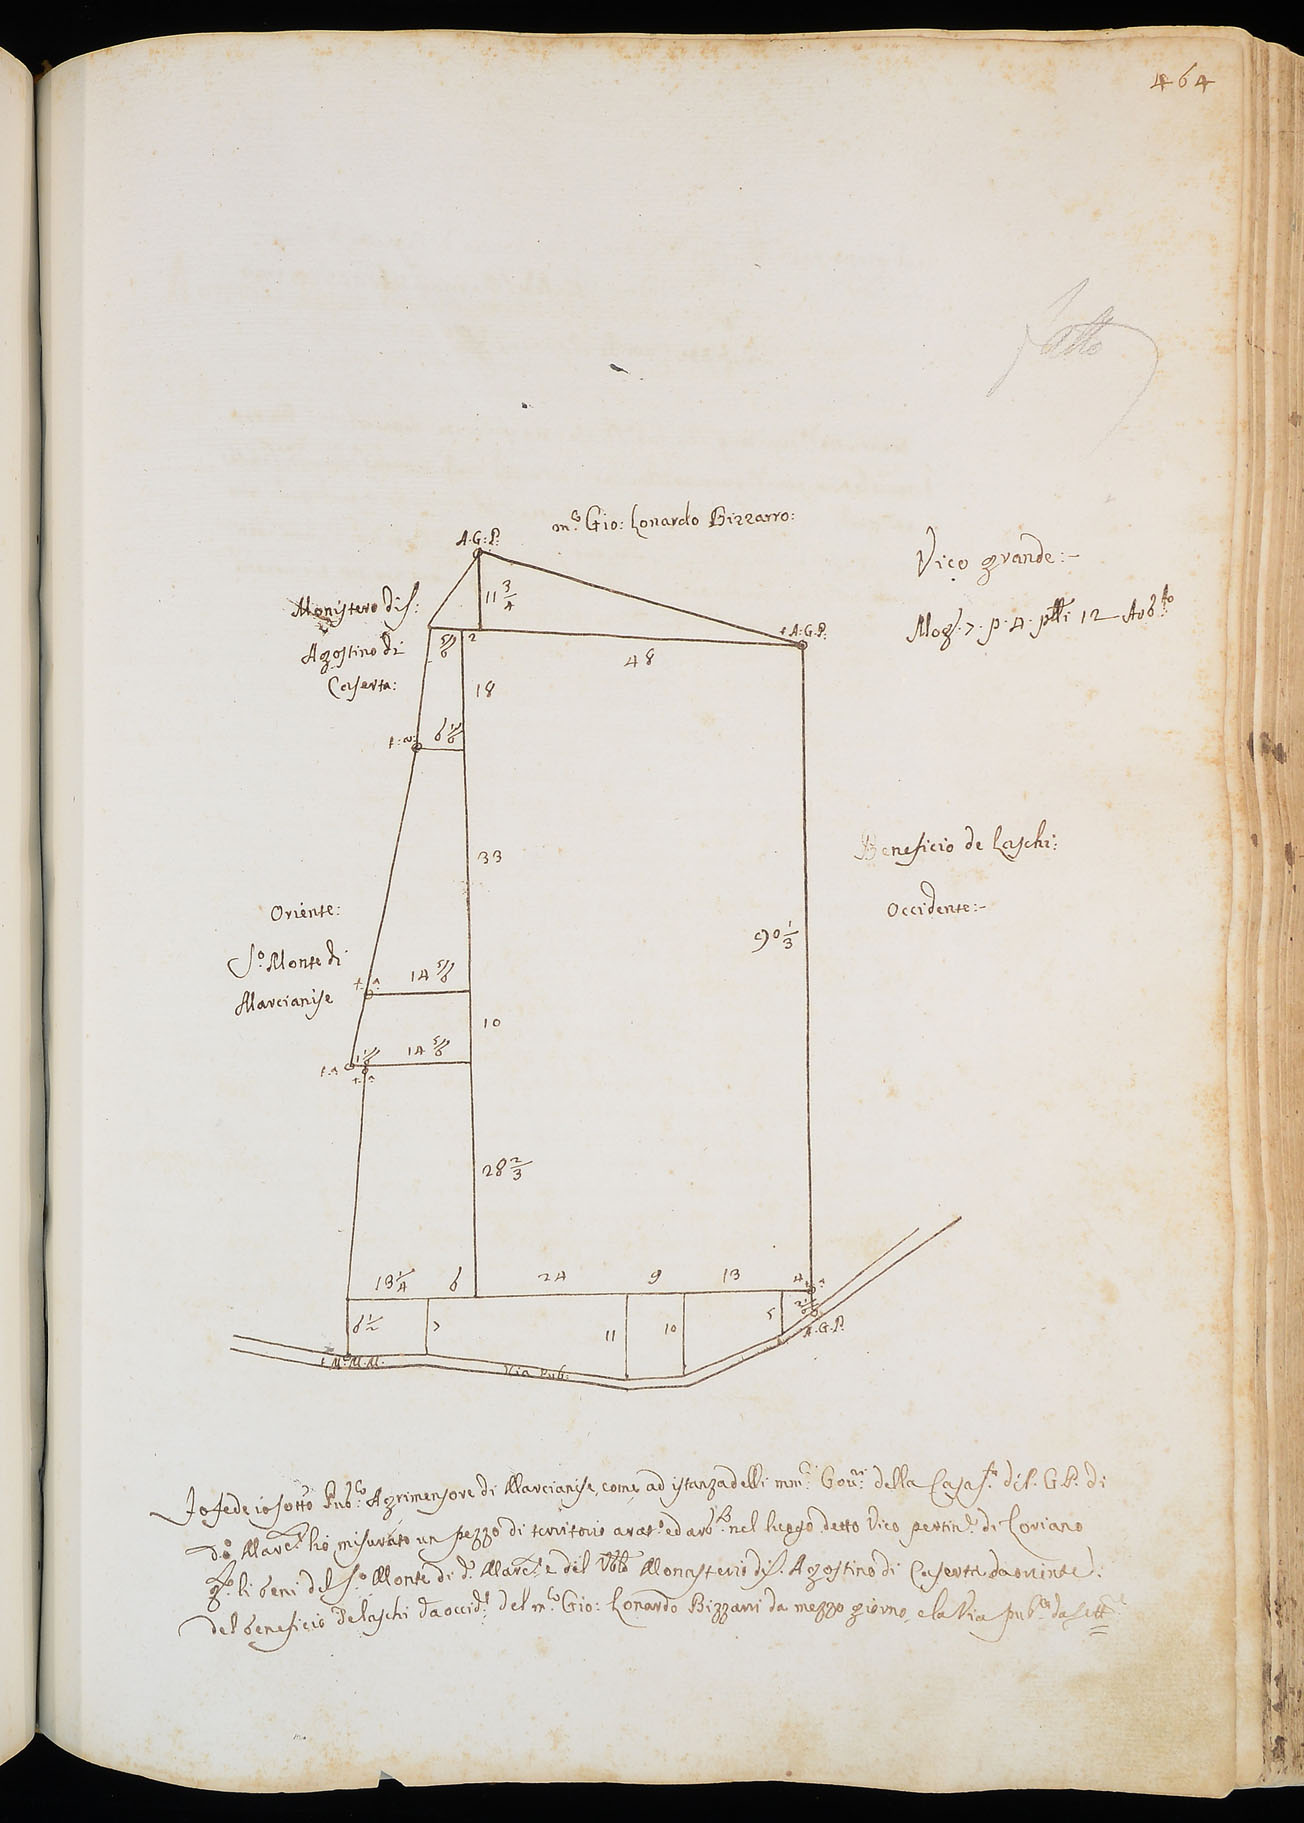 464
fatto
m.co Gio: Lonardo Bizzarro:
A.G.P.
Vico grande:-
Monistero di S:
11 3/4
Mog.7. p. 4. p.lli 12 Arb.to
Agostino di
5/6
2
t A.G.P.
Caserta:
48
18
t.a.
6 1/6
33
Beneficio de Laschi:
Oriente:
Occidente:-
90 1/3
S.o Monte di
14 5/6
Marcianise
t.a.
10
1 1/6
14 5/6
t.a
t.a.
28 2/3
13 1/4
6
24
9
13
4
6 1/2
7
11
10
5
A.G.P.
t M.o M.M.
Via Pub:
Io fede io sotto Pub.co Agrimensore di Marcianise, come ad istanza delli mm.ci Gov.ri della Casa S.ta di S. G.P. di
d.o Marc.e hò misurato un pezzo di territorio arat.o ed arb.to nel luogo detto Vico pertin.e di Loriano
li beni del S.o Monte di d.o Marc.e e del Monasterio di S. Agostino di Caserta da oriente
del beneficio de Laschi da occid.e del m.co Gio: Lonardo Bizzarri da mezzo giorno, e la Via pub.ca da sett.e